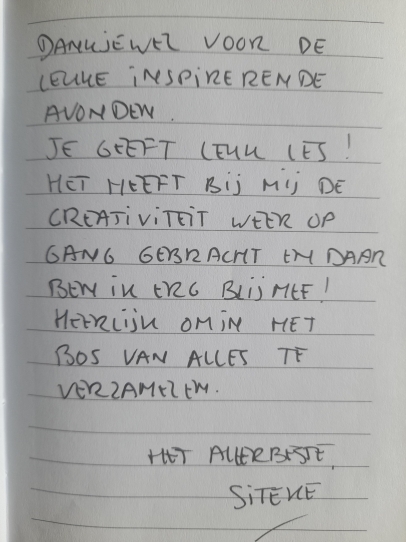 DANKJEWEL VOOR DE
LEUKE INSPIRERENDE
AVONDEN.
JE GEEFT LEUK LES!
HET HEEFT BIJ MIJ DE
CREATIVITEIT WEER OP
GANG GEBRACHT EN DAAR
BEN IK ERG BLIJ MEE!
HEERLIJK OM IN HET
BOS VAN ALLES TE
VERZAMELEN.
HET ALLERBESTE,